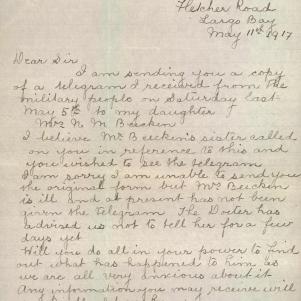 Fletcher Road
Largo Bay
May 11th 1917
Dear Sir
I am sending you a copy
of a telegram I received from the
military people on Saturday last
May 5th to my daughter
Mrs N. M. Beckin
I believe Mr Beeckin's sister called
on you in reference to this and
you wished to see the telegram
I am sorry I am unable to send you
the original form but Mrs Beeckin
is ill and at present has not been
given the telegram The Doctor has
advised us not to tell her for a few
days yet
Will you do all in your power to find
out what has happened to him as
we are all very anxious about it
Any information you may receive will